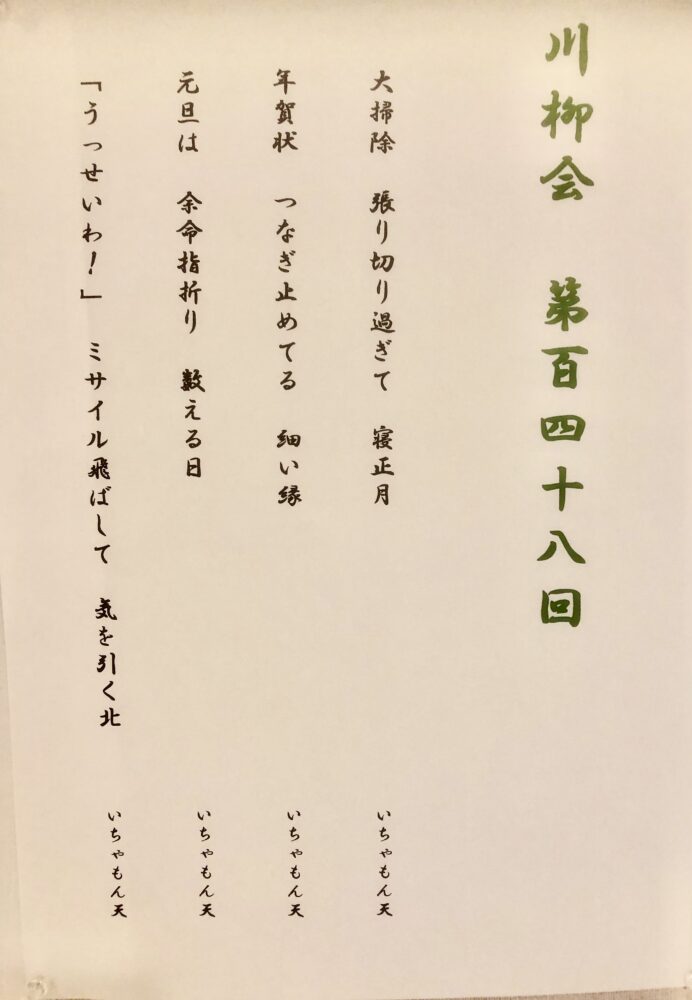 川柳会　第百四十八回
大掃除　張り切り過ぎて　寝正月
いちゃもん天
年賀状　つなぎ止めてる　細い縁
いちゃもん天
元旦は　余命指折り　数える日
いちゃもん天
「うっせいわ！」　ミサイル飛ばして　気を引く北
いちゃもん天